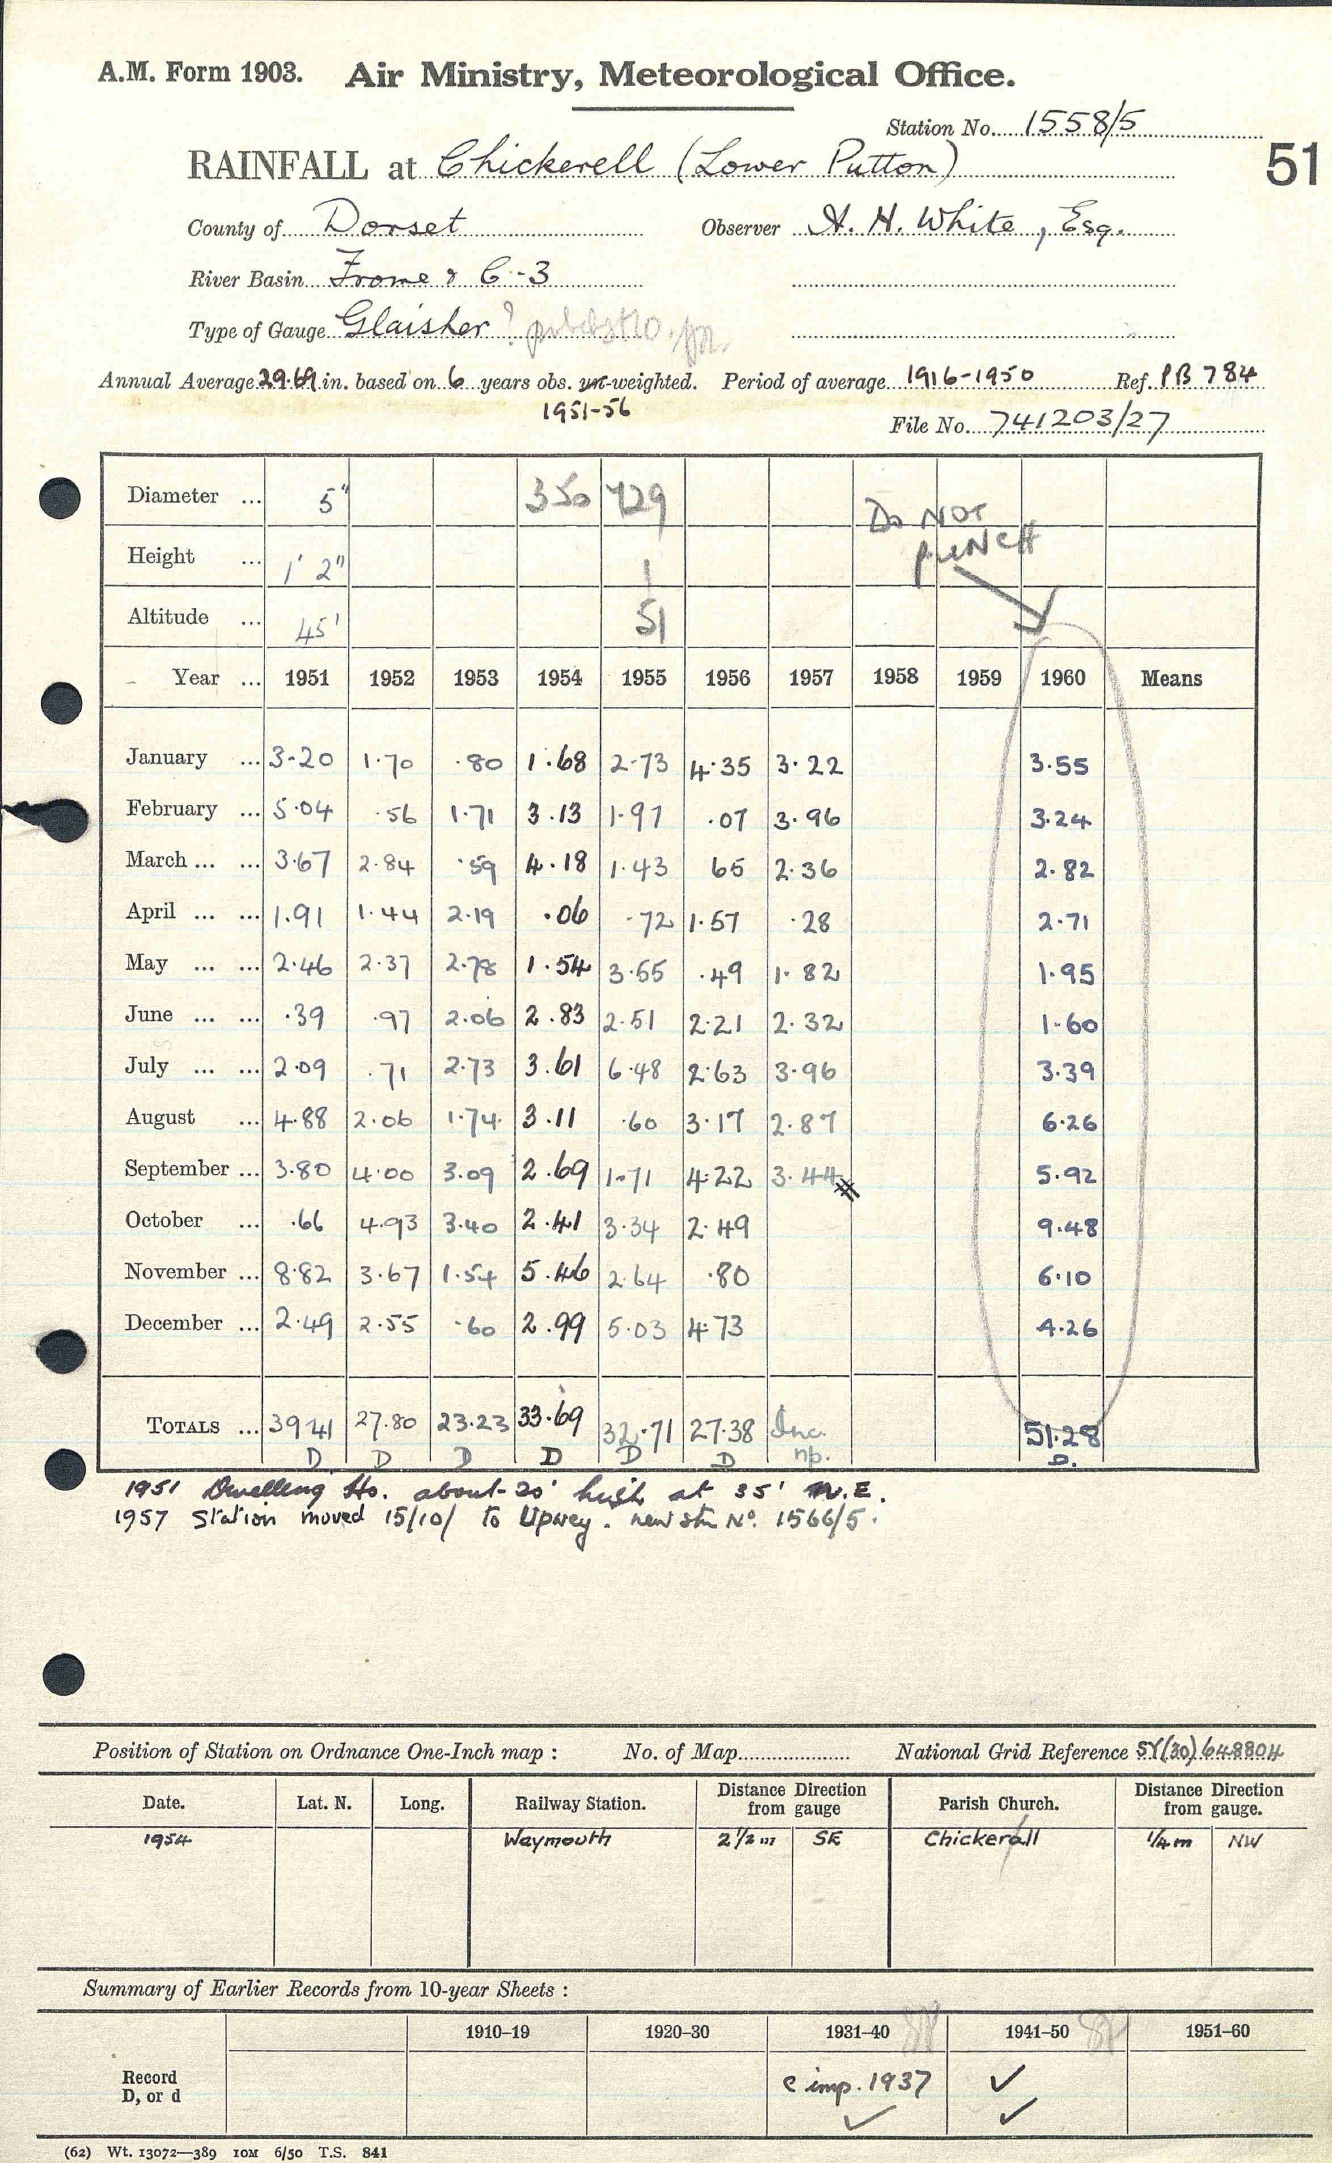 A.M. Form 1903. Air Ministry, Meteorological Office.
Station No. 1558/5
RAINFALL at Chickerell (Lower Putton)
51
County of Dorset Observer A. H. White, Esq.
River Basin Frome & C-3
Type of Gauge Glaisher ?
Annual Average 29.69 in. based on 6 years obs. un-weighted. Period of average 1916-1950 Ref. PB 784
1951-56
File No. 741203/27
Diameter ... 5" 350 729
Do NOT PUNCH
Height ... 1' 2" 1
Altitude ... 45' 51
Year ... 1951 1952 1953 1954 1955 1956 1957 1958 1959 1960 Means
January ... 3.20 1.70 .80 1.68 2.73 4.35 3.22 3.55
February ... 5.04 .56 1.71 3.13 1.97 .07 3.96 3.24
March ... ... 3.67 2.84 .59 4.18 1.43 65 2.36 2.82
April ... ... 1.91 1.44 2.19 .06 .72 1.57 .28 2.71
May ... ... 2.46 2.37 2.78 1.54 3.55 .49 1.82 1.95
June ... ... .39 .97 2.06 2.83 2.51 2.21 2.32 1.60
July ... ... 2.09 .71 2.73 3.61 6.48 2.63 3.96 3.39
August ... 4.88 2.06 1.74 3.11 .60 3.17 2.87 6.26
September ... 3.80 4.00 3.09 2.69 1.71 4.22 3.44 5.92
October ... .66 4.93 3.40 2.41 3.34 2.49 9.48
November ... 8.82 3.67 1.54 5.46 2.64 .80 6.10
December ... 2.49 2.55 .60 2.99 5.03 4.73 4.26
TOTALS ... 39 41 27.80 23.23 33.69 32.71 27.38 Inc. 51.28
D D D D D D np. D.
1951 Dwelling Ho. about 20' high at 35' N.E.
1957 Station moved 15/10/ to Upwey. new stn No. 1566/5.
Position of Station on Ordnance One-Inch map : No. of Map.................... National Grid Reference SY(30) 648804
Date. Lat. N. Long. Railway Station. Distance from gauge Direction Parish Church. Distance from gauge. Direction
1954 Weymouth 2 1/2 m SE Chickerall 1/4 m NW
Summary of Earlier Records from 10-year Sheets :
1910–19 1920–30 1931–40 1941–50 1951–60
Record
D, or d
c imp. 1937 ✓
✓ ✓
(62) Wt. 13072—389 10M 6/50 T.S. 841